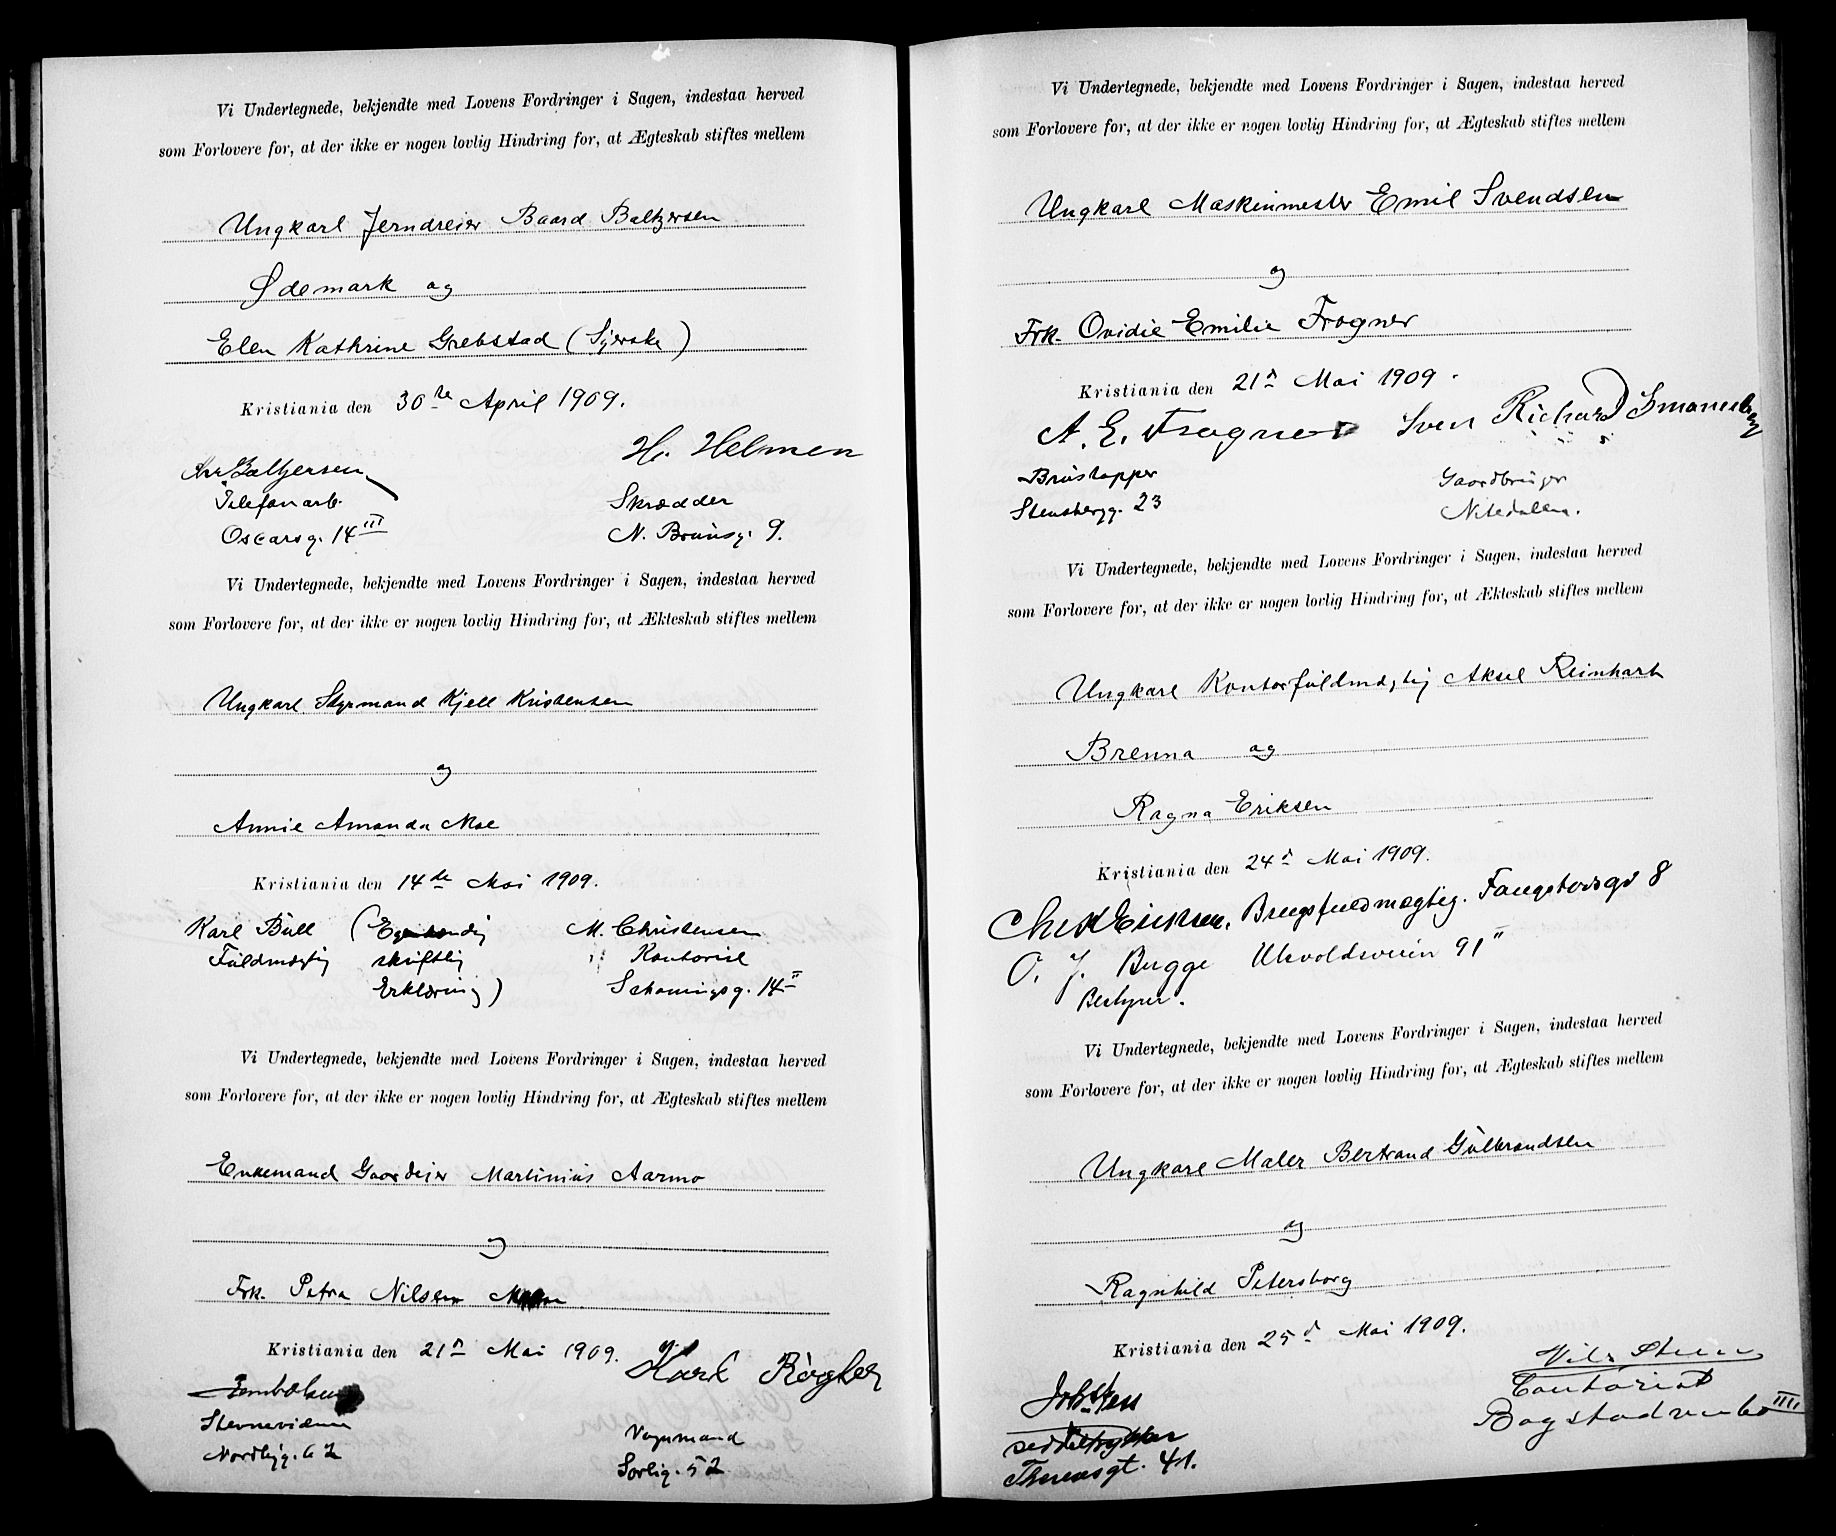 Vi Undertegnede, bekjendte med Lovens Fordringer i Sagen, indestaa herved
som Forlovere for, at der ikke er nogen lovlig Hindring for, at Ægteskab stiftes mellem
Ungkarl Jerndreier Baard Baltzersen
Ødemark og
Elen Kathrine Grebstad (Syerske)
Kristiania den 30te April 1909.
H. Helmen
Baltzersen
Telefonarb.
Skrædder
Oscarsg. 14 III
N. Brunsg. 9.
Vi Undertegnede, bekjendte med Lovens Fordringer i Sagen, indestaa herved
som Forlovere for, at der ikke er nogen lovlig Hindring for, at Ækteskab stiftes mellem
Ungkarl Styrmand Kjell Kristensen
og
Annie Amanda Moe
Kristiania den 14de Mai 1909.
Karl Bull (Egenhændig M. Christensen
Fuldmægtig skriftlig Kontorist
Erklæring) Schøningsg. 14 II
Vi Undertegnede, bekjendte med Lovens Fordringer i Sagen, indestaa herved
som Forlovere for, at der ikke er nogen lovlig Hindring for, at Ægteskab stiftes mellem
Enkemand Gaardeier Martinius Aarmo
og
Frk. Petra Nilsen
Kristiania den 21d Mai 1909.
Karl
Nordbyg. 62
Vognmand
Sorlig. 52
Vi Undertegnede, bekjendte med Lovens Fordringer i Sagen, indestaa herved
som Forlovere for, at der ikke er nogen lovlig Hindring for, at Ægteskab stiftes mellem
Ungkarl Maskinmester Emil Svendsen
og
Frk. Ovidie Emilie Frogner
Kristiania den 21d Mai 1909.
A. E. Frogner Sven Richard
Brustapper
Gaardbruger
Stensbergg. 23
Nitedalen.
Vi Undertegnede, bekjendte med Lovens Fordringer i Sagen, indestaa herved
som Forlovere for, at der ikke er nogen lovlig Hindring for, at Ækteskab stiftes mellem
Ungkarl Kontorfuldmægtig Aksel Reinhart
Brenna og
Ragna Eriksen
Kristiania den 24d Mai 1909.
Eriksen, Brugsfuldmægtig. 8
O. J. Bugge Ulvoldsveien 91 II
Bestyrer.
Vi Undertegnede, bekjendte med Lovens Fordringer i Sagen, indestaa herved
som Forlovere for, at der ikke er nogen lovlig Hindring for, at Ægteskab stiftes mellem
Ungkarl Maler Bertrand Gulbrandsen
og
Ragnhild Petersborg
Kristiania den 25d Mai 1909.
Nils
Contorist
Bogstadveien
Thereesgt. 41.